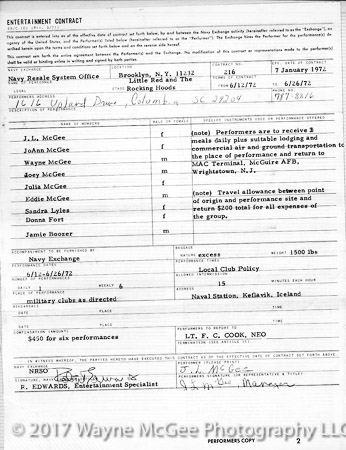 ENTERTAINMENT CONTRACT
This contract is entered into as of the effective date of contract set forth below, by and between the Navy Exchange activity (hereafter referred to as the "Exchange"), an
agency of the United States, and the Performer(s) listed (hereinafter referred to as the "Performer"). The Exchange
herein based upon the terms and conditions set forth below and on the reverse side hereof.
This contract sets forth the entire agreement between the Performer(s) and the Exchange. No modification of this contract or representations made to the performer(s)
shall be valid or binding unless in writing and signed by both parties.
NAVY EXCHANGE LOCATION CONTRACT NO. DATE
Navy Resale System Office Brooklyn, N.Y. 11232 216 7 January 1972
PERFORMER(S) STAGE TERMS OF CONTRACT
LEGAL Little Red and The Rocking Hoods From 6/12/72 6/26/72
PERMANENT ADDRESS PHONE NO.
1616 Upland Drive, Columbia SC 29204 787-8816
DESCRIPTION OF PERFORMANCE
NAME OF MEMBERS MALE OR FEMALE SPECIFIC INSTRUMENTS USED OR PERFORMANCE OFFERED
J.L. McGee m (note) Performers are to receive 3
JoAnn McGee f meals daily plus suitable lodging and
Wayne McGee m commercial air and ground transportation to
Joey McGee m the place of performance and return to
MAC Terminal, McGuire AFB,
Wrightstown, N.J.
Julia McGee f
Eddie McGee m (note) Travel allowance between point
Sandra Lyles f of origin and performance site and
Donna Fort f return $200 total for all expenses of
the group.
Jamie Boozer m
ACCOMPANIMENT TO BE FURNISHED BY BAGGAGE
Navy Exchange NATURE excess WEIGHT 1500 lbs
PERFORMANCE DATES PERFORMANCE TIMES
6/12-6/26/72 Local Club Policy
NUMBER OF PERFORMANCES ALLOWED INTERMISSION
DAILY 1 WEEKLY 6 15 MINUTES EACH HOUR
PLACE OF PERFORMANCE ADDRESS
military clubs as directed Naval Station, Keflavik, Iceland
REHEARSALS
DATE PLACE DATE PLACE
DATE PLACE DATE PLACE
COMPENSATION (AMOUNT) PERFORMERS TO REPORT TO
$450 for six performances LT. F. C. COOK, NEO
TERMINATION (SEE ARTICLE 11)
IN WITNESS WHEREOF, THE PARTIES HERETO HAVE EXECUTED THIS CONTRACT AS OF THE EFFECTIVE DATE OF CONTRACT SET FORTH ABOVE.
NAVY EXCHANGE PERFORMER (PLEASE PRINT)
NRSO J.L. McGee
R. EDWARDS, Entertainment Specialist J L McGee Manager
PERFORMERS COPY 2
© 2017 Wayne McGee Photography LLC